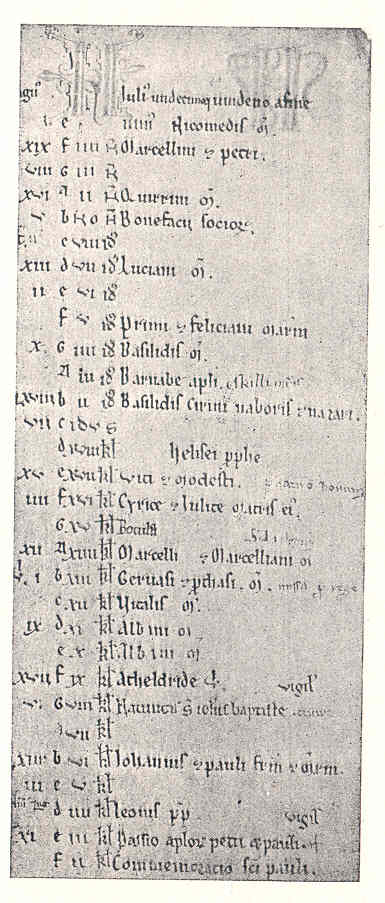 Iulii undecimoq uindeno a fine
i e iiii N Nicomedis m
xix f iiii N Marcellini & petri.
viii G iii N
xvi A ii N Quirini m.
v b N o N Bonefacii socior
c viii id
xiii d vii id Luciani m.
ii e vi id
f v id Primi & feliciani marm
x. G iiii id Basilidis m.
A iii id Barnabe apli.
xviii b ii id Basilidis Cirini naboris & nazari.
vii c idus
d xviii kl helisei pphe
xv e xvii kl Viti & modesti.
iiii f xvi kl Cyrice & Iulite matris ei
G xv kl Botulfi
xii A xiiii kl Marcelli & Marcelliani m
i b xiii kl Geruasi & pthasi. m.
c xii kl Vitalis m.
ix d xi kl Albini m
e x kl Albini m
xvii f ix kl Atheldride v. vigil
vi G viii kl Natiuitas S iohis baptiste
A vii kl
xiiii b vi kl Iohannis & pauli frm & mrm.
iii c v kl
d iiii kl leonis pp. vigil
xi e iii kl Passio aplor petri & pauli.
f ii kl Commemoracio sci pauli.